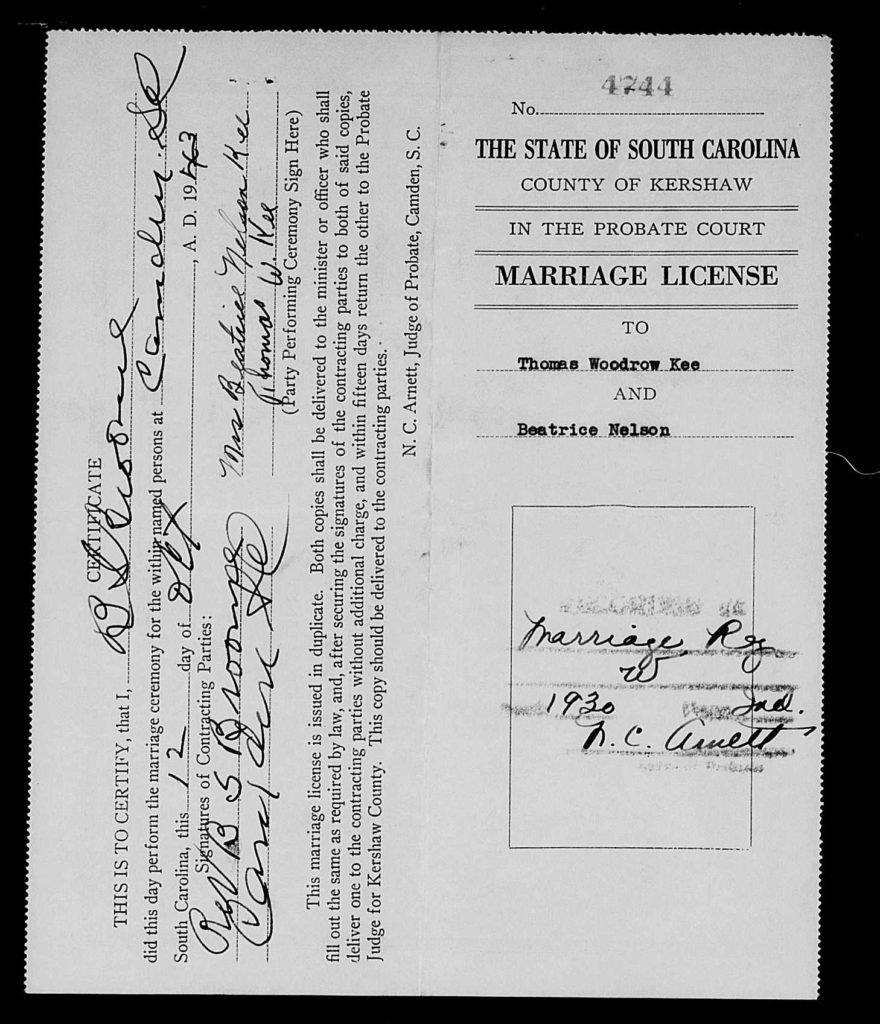 4744
No.
THE STATE OF SOUTH CAROLINA
COUNTY OF KERSHAW
IN THE PROBATE COURT
MARRIAGE LICENSE
TO
Thomas Woodrow Kee
AND
Beatrice Nelson
Marriage Reg
W
1930 Ind.
N. C. Arnett
CERTIFICATE
THIS IS TO CERTIFY, that I, B S Broome
did this day perform the marriage ceremony for the within named persons at Camden. Sc
South Carolina, this 12 day of Oct, A. D. 1943
Signatures of Contracting Parties:
Rev B S Broome Mrs Beatrice Nelson Kee
Camden Sc Thomas W. Kee
(Party Performing Ceremony Sign Here)
This marriage license is issued in duplicate. Both copies shall be delivered to the minister or officer who shall
fill out the same as required by law, and, after securing the signatures of the contracting parties to both of said copies,
deliver one to the contracting parties without additional charge, and within fifteen days return the other to the Probate
Judge for Kershaw County. This copy should be delivered to the contracting parties.
N. C. Arnett, Judge of Probate, Camden, S. C.